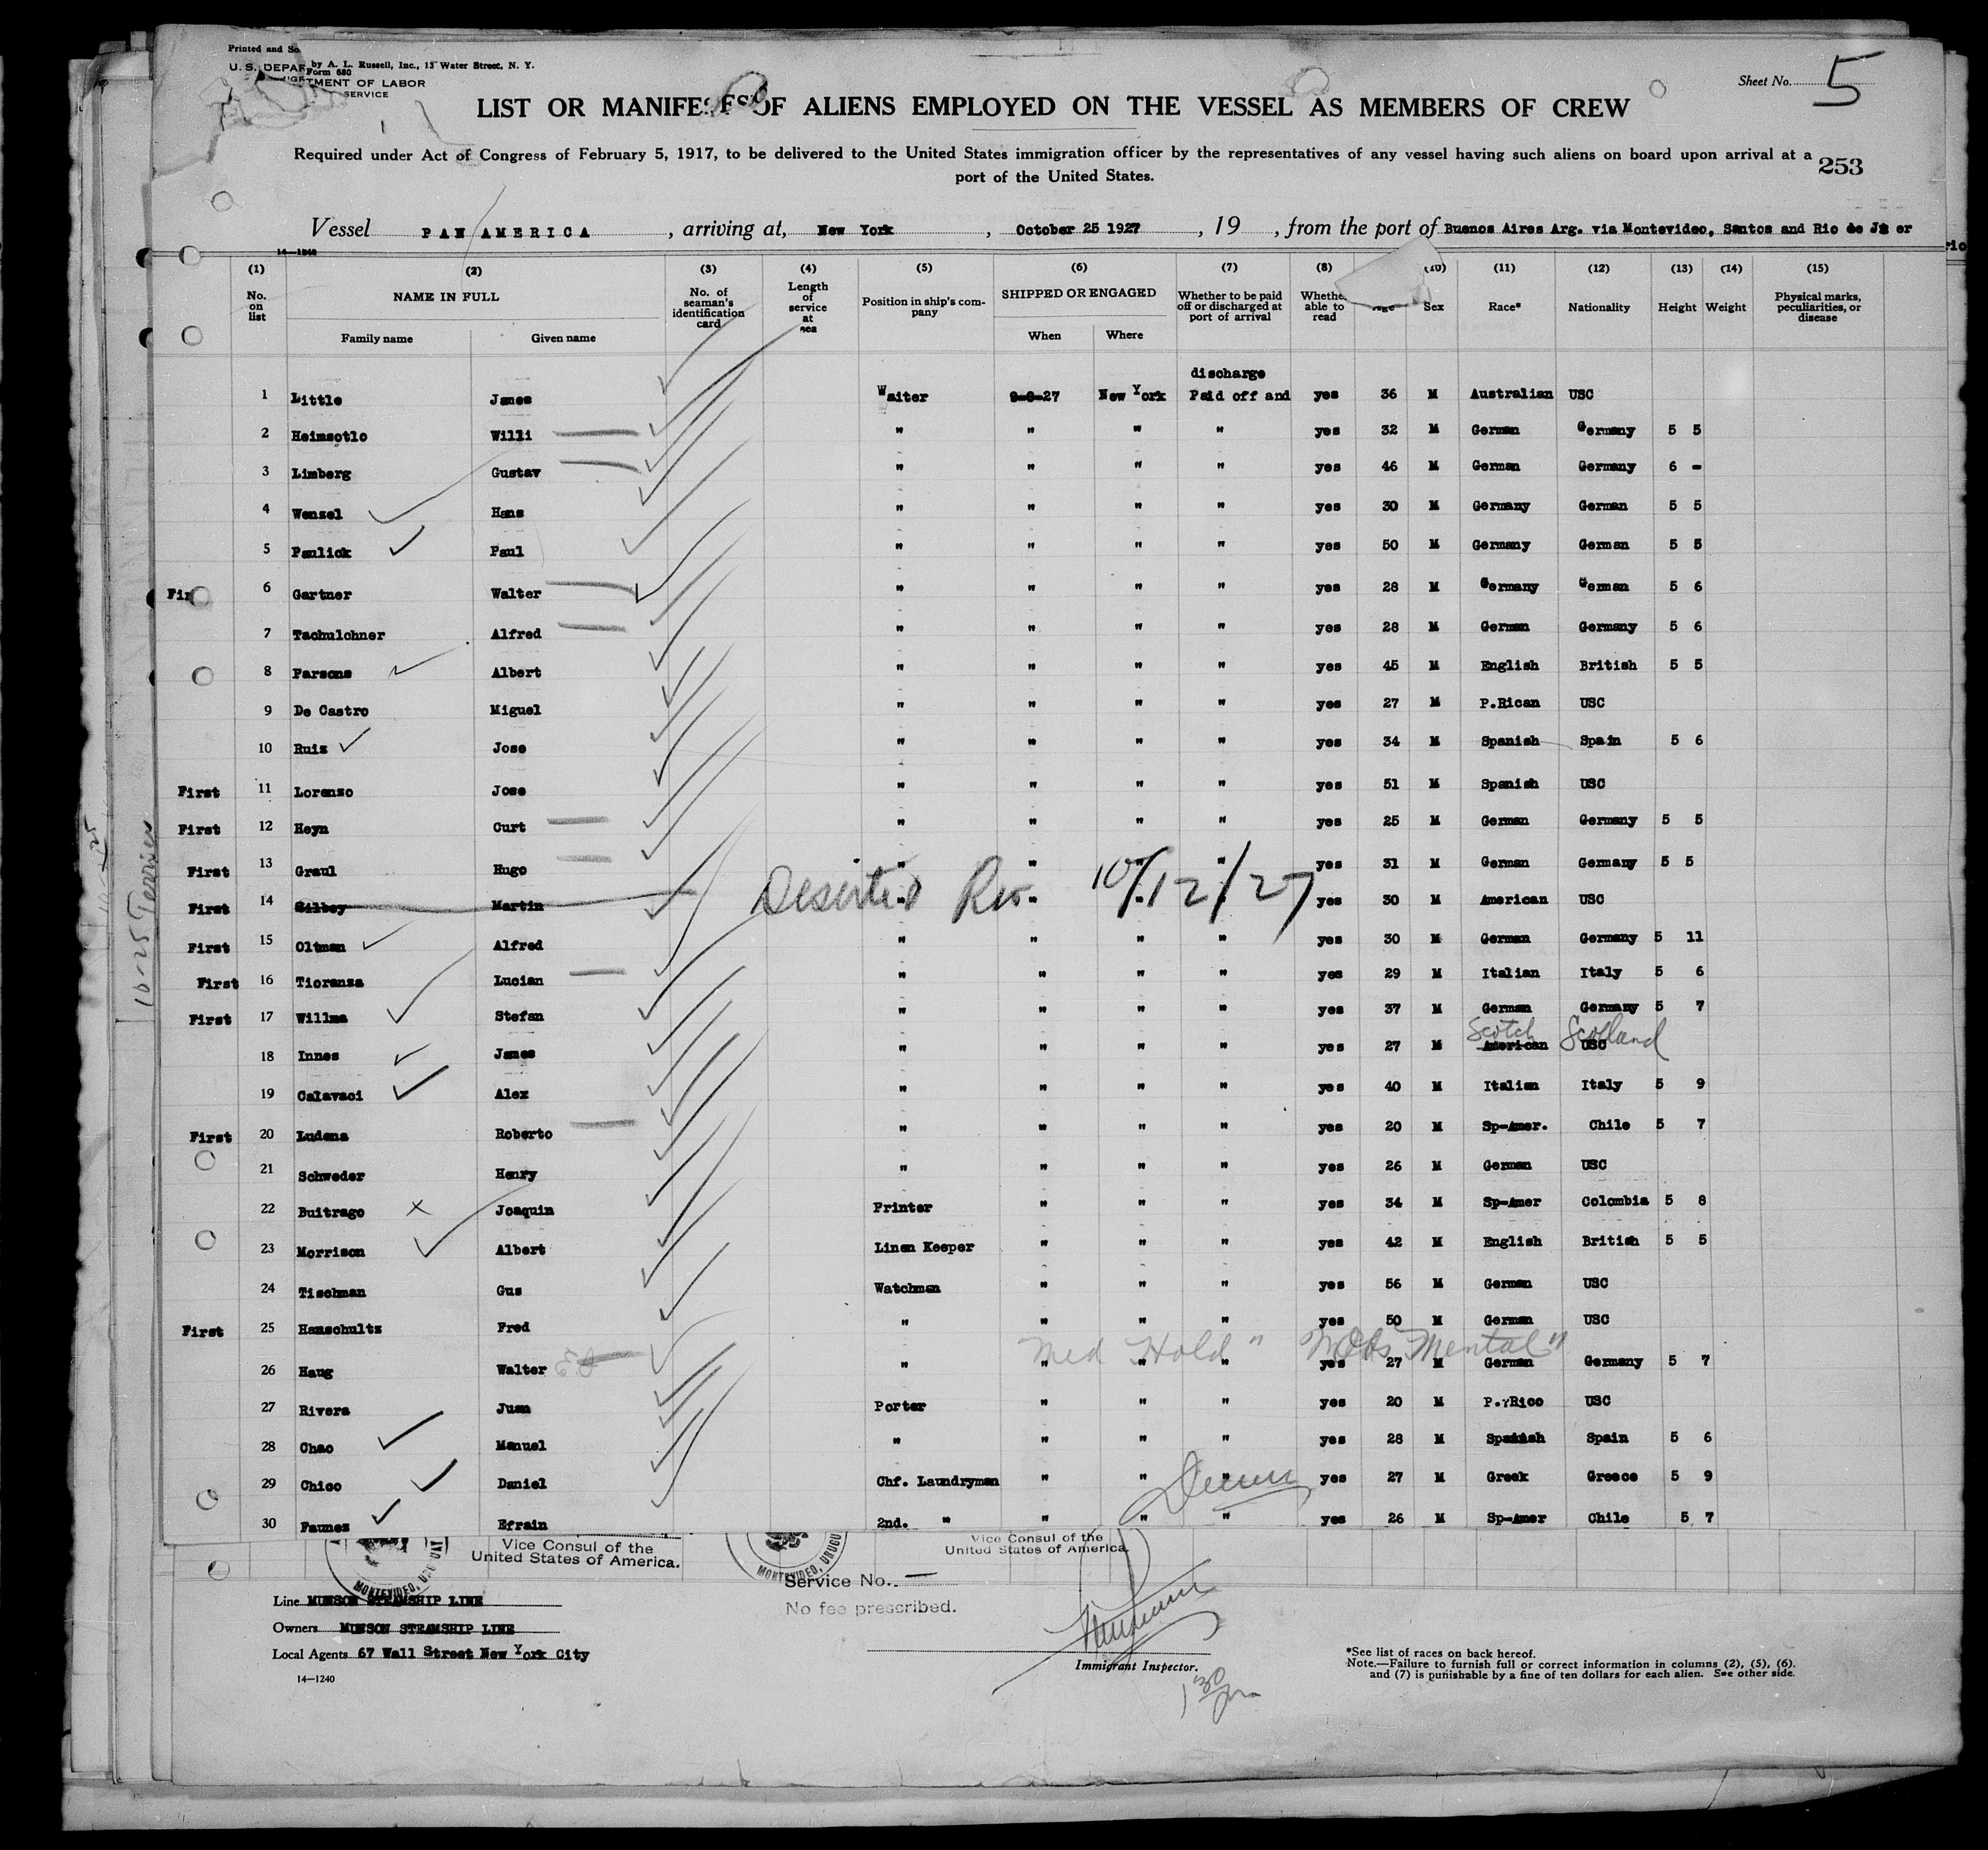 Printed and So
by A. L. Russell, Inc., 13 Water Street, N. Y.
Form 680
U. S. DEPAR TMENT OF LABOR
SERVICE
Sheet No. 5
LIST OR MANIFEST OF ALIENS EMPLOYED ON THE VESSEL AS MEMBERS OF CREW
Required under Act of Congress of February 5, 1917, to be delivered to the United States immigration officer by the representatives of any vessel having such aliens on board upon arrival at a
port of the United States.
253
Vessel PAN AMERICA, arriving at, New York, October 25 1927, 19 , from the port of Buenos Aires Arg. via Montevideo, Santos and Rio de Ja er
rio
(1) (2) (3) (4) (5) (6) (7) (8) (10) (11) (12) (13) (14) (15)
No. on list NAME IN FULL Family name Given name No. of seaman's identification card Length of service at sea Position in ship's company SHIPPED OR ENGAGED When Where Whether to be paid off or discharged at port of arrival Whethe able to read Sex Race* Nationality Height Weight Physical marks, peculiarities, or disease
discharge
1 Little James Waiter 9-8-27 New York Paid off and yes 36 M Australian USC
2 Heimsotlo Willi " " " " yes 32 M German Germany 5 5
3 Limberg Gustav " " " " yes 46 M German Germany 6 -
4 Wenzel Hans " " " " yes 30 M Germany German 5 5
5 Paulick Paul " " " " yes 50 M Germany German 5 5
Fir 6 Gartner Walter " " " " yes 28 M Germany German 5 6
7 Tschulchner Alfred " " " " yes 28 M German Germany 5 6
8 Parsons Albert " " " " yes 45 M English British 5 5
9 De Castro Miguel " " " " yes 27 M P.Rican USC
10 Ruiz Jose " " " " yes 34 M Spanish Spain 5 6
First 11 Lorenzo Jose " " " " yes 51 M Spanish USC
First 12 Heyn Curt " " " " yes 25 M German Germany 5 5
First 13 Graul Hugo " " " " yes 31 M German Germany 5 5
First 14 Gilbey Martin Deserted Rio 10/12/27 " " " " yes 30 M American USC
First 15 Oltman Alfred " " " " yes 30 M German Germany 5 11
First 16 Tioranza Lucian " " " " yes 29 M Italian Italy 5 6
First 17 Willma Stefan " " " " yes 37 M German Germany 5 7
Scotch Scotland
18 Innes James " " " " yes 27 M American USC
19 Calavaci Alex " " " " yes 40 M Italian Italy 5 9
First 20 Ludena Roberto " " " " yes 20 M Sp-Amer. Chile 5 7
21 Schweder Henry " " " " yes 26 M German USC
22 Buitrago Joaquin Printer " " " yes 34 M Sp-Amer Colombia 5 8
23 Morrison Albert Linen Keeper " " " yes 42 M English British 5 5
24 Tischman Gus Watchman " " " yes 56 M German USC
First 25 Hamschultz Fred " " " " yes 50 M German USC
Med Hold " Mental "
26 Haug Walter " " " " yes 27 M German Germany 5 7
27 Rivera Juan Porter " " " yes 20 M P.Rico USC
28 Chao Manuel " " " " yes 28 M Spanish Spain 5 6
29 Chico Daniel Chf. Laundryman " " " yes 27 M Greek Greece 5 9
30 Faunes Efrain 2nd. " " " " yes 26 M Sp-Amer Chile 5 7
10-25
MONTEVIDEO, URUGUAY
Vice Consul of the
United States of America.
MONTEVIDEO, URUGU
Vice Consul of the
United States of America.
Service No. —
No fee prescribed.
Line MUNSON STEAMSHIP LINE
Owners MUNSON STEAMSHIP LINE
Local Agents 67 Wall Street New York City
14—1240
Immigrant Inspector.
1 30 pm
*See list of races on back hereof.
Note.—Failure to furnish full or correct information in columns (2), (5), (6),
and (7) is punishable by a fine of ten dollars for each alien. See other side.